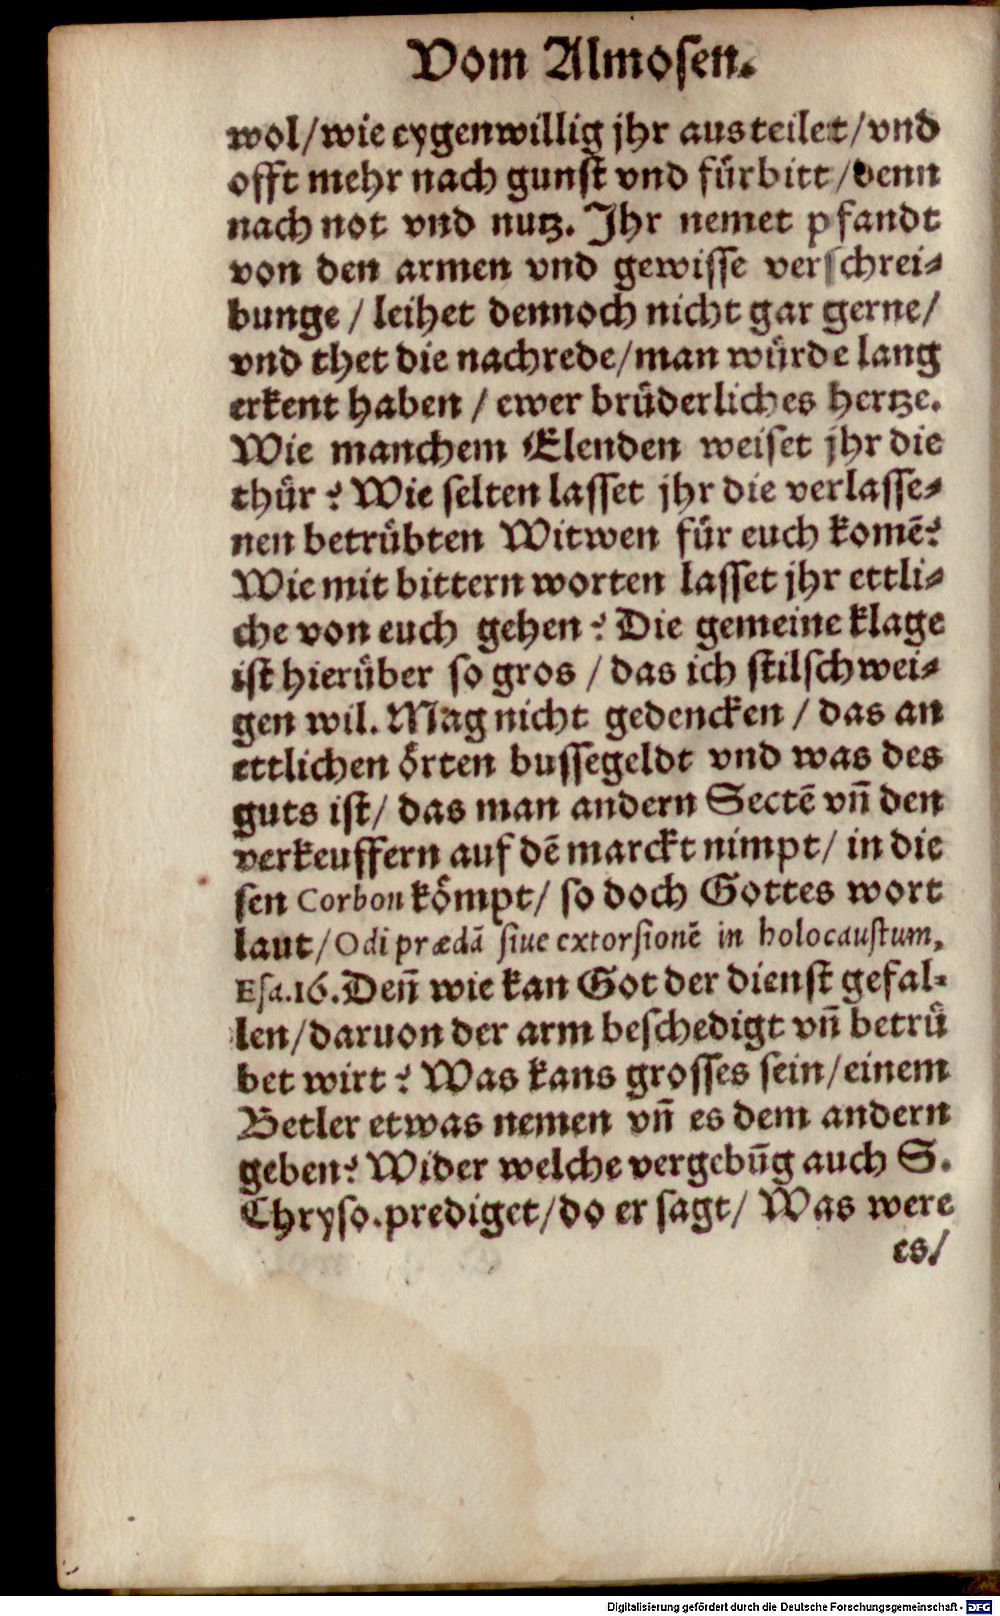 Vom Almosen.
wol/wie eygenwillig jhr austeilet/vnd
offt mehr nach gunst vnd fürbitt/denn
nach not vnd nutz. Jhr nemet pfandt
von den armen vnd gewisse verschrei-
bunge / leihet dennoch nicht gar gerne/
vnd thet die nachrede/man würde lang
erkent haben / ewer brüderliches hertze.
Wie manchem Elenden weiset jhr die
thür? Wie selten lasset jhr die verlasse-
nen betrübten Witwen für euch komē?
Wie mit bittern worten lasset jhr ettli-
che von euch gehen? Die gemeine klage
ist hierüber so gros / das ich stilschwei-
gen wil. Mag nicht gedencken / das an
ettlichen örten bussegeldt vnd was des
guts ist/ das man andern Sectē vn̄ den
verkeuffern auf dē marckt nimpt/ in die
sen Corbon kömpt/ so doch Gottes wort
laut/Odi prædā siue extorsionē in holocaustum,
Esa.16. Den̄ wie kan Got der dienst gefal-
len/daruon der arm beschedigt vn̄ betrü
bet wirt? Was kans grosses sein/einem
Betler etwas nemen vn̄ es dem andern
geben? Wider welche vergebūg auch S.
Chryso.prediget/do er sagt/ Was were
es/
Digitalisierung gefördert durch die Deutsche Forschungsgemeinschaft - DFG